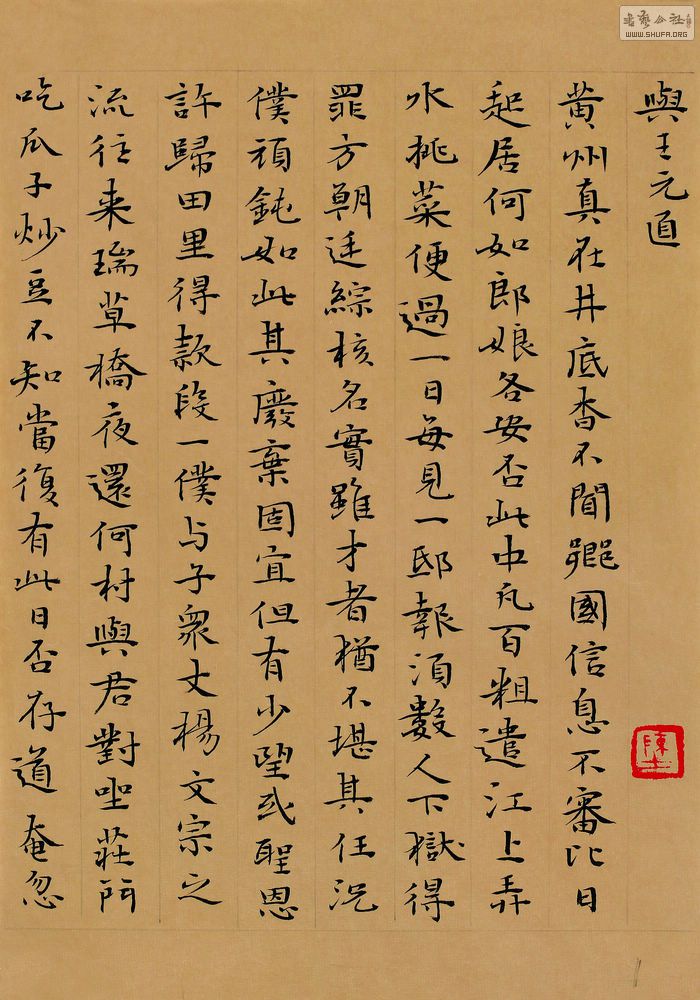 書藝公社
WWW.SHUFA.ORG
與王元直
黄州真在井底杳不聞鄉國信息不審比日
起居何如郎娘各安否此中凡百粗遣江上弄
水挑菜便過一日每見一邸報須數人下獄得
罪方朝廷綜核名實雖才者猶不堪其任況
僕頑鈍如此其廢棄固宜但有少望或聖恩
許歸田里得款段一僕与子衆丈楊文宗之
流往来瑞草橋夜還何村與君對坐莊門
吃瓜子炒豆不知當復有此日否存道奄忽